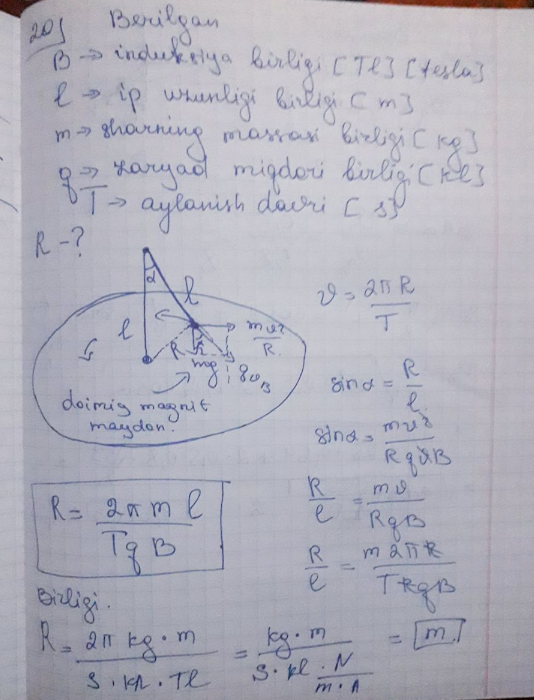 20) Berilgan
B → induksiya birligi [Tl] [tesla]
l → ip uzunligi birligi [m]
m → sharning massasi birligi [kg]
q → zaryad miqdori birligi [kl]
T → aylanish davri [s]
R - ?
α
l
l
R
mϑ²/R
mg
qϑB
doimiy magnit
maydon.
ϑ = 2πR/T
sinα = R/l
sinα = mϑ²/RqϑB
R/l = mϑ/RqB
R/l = m2πR/TRqB
R = 2πm l/TqB
Birligi.
R = 2π kg·m/s·kl·Tl = kg·m/s·kl·N/m·A = m